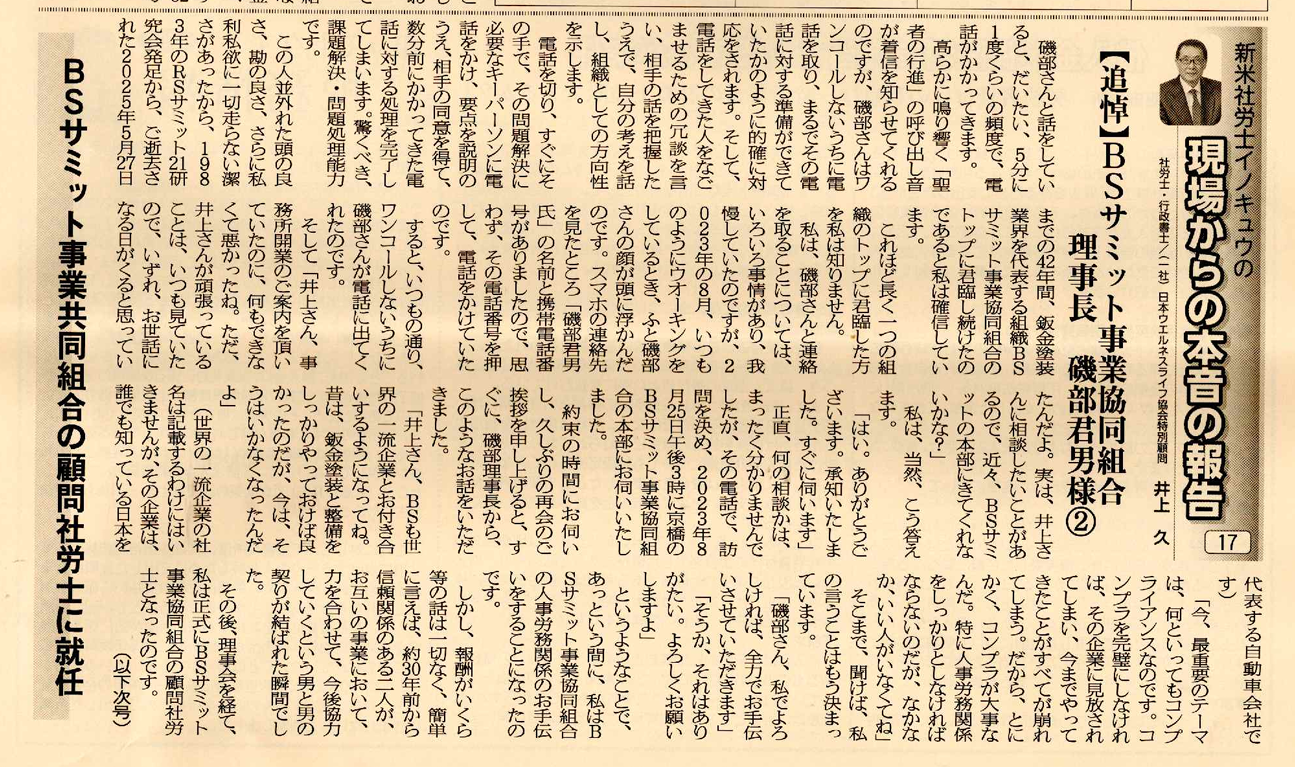 新米社労士イノキュウの
現場からの本音の報告
17
社労士・行政書士／(一社)日本ウエルネスライフ協会特別顧問 井上 久
【追悼】BSサミット事業協同組合
理事長 磯部君男様②
BSサミット事業共同組合の顧問社労士に就任
磯部さんと話をしてい
ると、だいたい、5分に
1度くらいの頻度で、電
話がかかってきます。
高らかに鳴り響く「聖
者の行進」の呼び出し音
が着信を知らせてくれる
のですが、磯部さんはワ
ンコールしないうちに電
話を取り、まるでその電
話に対する準備ができて
いたかのように的確に対
応をされます。そして、
電話をしてきた人をなご
ませるための冗談を言
い、相手の話を把握した
うえで、自分の考えを話
し、組織としての方向性
を示します。
電話を切り、すぐにそ
の手で、その問題解決に
必要なキーパーソンに電
話をかけ、要点を説明の
うえ、相手の同意を得て、
数分前にかかってきた電
話に対する処理を完了し
てしまいます。驚くべき、
課題解決・問題処理能力
です。
この人並外れた頭の良
さ、勘の良さ、さらに私
利私欲に一切走らない潔
さがあったから、198
3年のRSサミット21研
究会発足から、ご逝去さ
れた2025年5月27日
までの42年間、鈑金塗装
業界を代表する組織BS
サミット事業協同組合の
トップに君臨し続けたの
であると私は確信してい
ます。
これほど長く一つの組
織のトップに君臨した方
を私は知りません。
私は、磯部さんと連絡
を取ることについては、
いろいろ事情があり、我
慢していたのですが、2
023年の8月、いつも
のようにウオーキングを
しているとき、ふと磯部
さんの顔が頭に浮かんだ
のです。スマホの連絡先
を見たところ「磯部君男
氏」の名前と携帯電話番
号がありましたので、思
わず、その電話番号を押
して、電話をかけていた
のです。
すると、いつもの通り、
ワンコールしないうちに
磯部さんが電話に出てく
れたのです。
そして「井上さん、事
務所開業のご案内を頂い
ていたのに、何もできな
くて悪かったね。ただ、
井上さんが頑張っている
ことは、いつも見ていた
ので、いずれ、お世話に
なる日がくると思ってい
たんだよ。実は、井上さ
んに相談したいことがあ
るので、近々、BSサミ
ットの本部にきてくれな
いかな?」
私は、当然、こう答え
ます。
「はい。ありがとうご
ざいます。承知いたしま
した。すぐに伺います」
正直、何の相談かは、
まったく分かりませんで
したが、その電話で、訪
問を決め、2023年8
月25日午後3時に京橋の
BSサミット事業協同組
合の本部にお伺いいたし
ました。
約束の時間にお伺い
し、久しぶりの再会のご
挨拶を申し上げると、す
ぐに、磯部理事長から、
このようなお話をいただ
きました。
「井上さん、BSも世
界の一流企業とお付き合
いするようになってね。
昔は、鈑金塗装と整備を
しっかりやっておけば良
かったのだが、今は、そ
うはいかなくなったんだ
よ」
(世界の一流企業の社
名は記載するわけにはい
きませんが、その企業は、
誰でも知っている日本を
代表する自動車会社で
す)
「今、最重要のテーマ
は、何といってもコンプ
ライアンスなのです。コ
ンプラを完璧にしなけれ
ば、その企業に見放され
てしまい、今までやって
きたことがすべてが崩れ
てしまう。だから、とに
かく、コンプラが大事な
んだ。特に人事労務関係
をしっかりとしなければ
ならないのだが、なかな
か、いい人がいなくてね」
そこまで、聞けば、私
の言うことはもう決まっ
ています。
「磯部さん、私でよろ
しければ、全力でお手伝
いさせていただきます」
「そうか、それはあり
がたい。よろしくお願い
しますよ」
というようなことで、
あっという間に、私はB
Sサミット事業協同組合
の人事労務関係のお手伝
いをすることになったの
です。
しかし、報酬がいくら
等の話は一切なく、簡単
に言えば、約30年前から
信頼関係のある二人が、
お互いの事業において、
力を合わせて、今後協力
していくという男と男の
契りが結ばれた瞬間でし
た。
その後、理事会を経て、
私は正式にBSサミット
事業協同組合の顧問社労
士となったのです。
(以下次号)